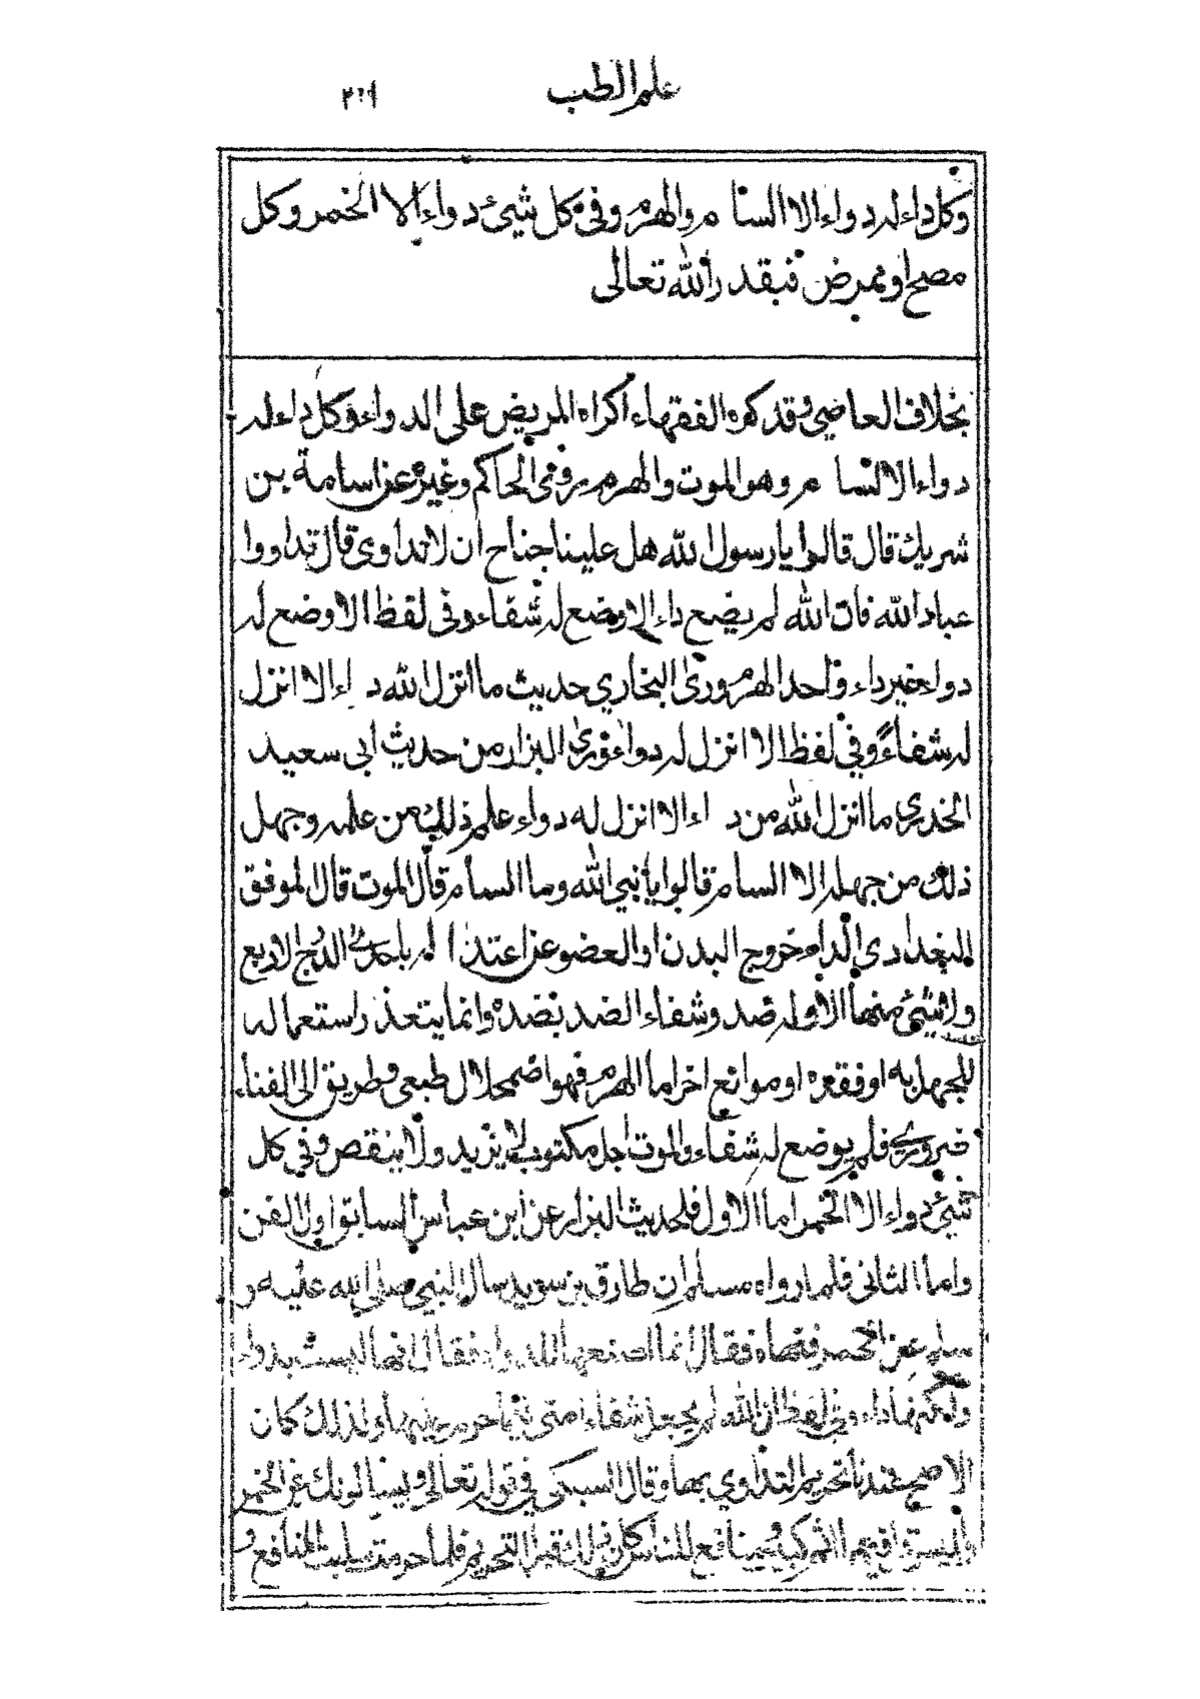 علم الطب
وكل داء له دواء الا السام والهرم وفي كل شيئ دواء الا الخمر وكل
مصح او ممرض فبقدر الله تعالى
بخلاف العاصي وقد كره الفقهاء اكراه المريض على الدواء وكل داء له
دواء الا السام وهو الموت والهرم روى الحاكم وغيره عن اسامة بن
شريك قال قالوا يا رسول الله هل علينا جناح ان لا نتداوى قال تداووا
عباد الله فان الله لم يضع داء الا وضع له شفاء وفى لفظ الا وضع له
دواء غير داء واحد الهرم وروى البخاري حديث ما انزل الله داء الا انزل
له شفاءً وفي لفظ الا انزل له دواء وروى البزار من حديث ابى سعيد
الخدري ما انزل الله من داء الا انزل له دواء علم ذلك من علمه وجهل
ذلك من جهله الا السام قالوا يا نبي الله وما السام قال الموت قال الموفق
البغدادي الداء خروج البدن او العضو عن اعتداله باحدى الدرج الاربع
ولا شيئ منها الا وله ضد وشفاء الضد بضده وانما يتعذر استعماله
للجهل به او فقده او موانع اخر اما الهرم فهو اضمحلال طبعى وطريق الى الفناء
ضروري فلم يوضع له شفاء والموت اجل مكتوب لا يزيد ولا ينقص وفي كل
شيئ دواء الا الخمر اما الاول فلحديث البزار عن ابن عباس السابق اول الفن
واما الثانى فلما رواه مسلم ان طارق بن سويد سال النبي صلى الله عليه و
سلم عن الخمر فنهاه فقال انما اصنعها للدواء فقال انها ليست بدواء
ولكنها داء وفي لفظ ان الله لم يجعل شفاء امتى فيما حرم عليها ولذلك كان
الاصح عندنا تحريم التداوي بها وقال السبكى في قوله تعالى ويسالونك عن الخمر
والميسر قل فيهما اثم كبير ومنافع للناس كان ذلك قبل التحريم فلما حرمت سلبت المنافع و